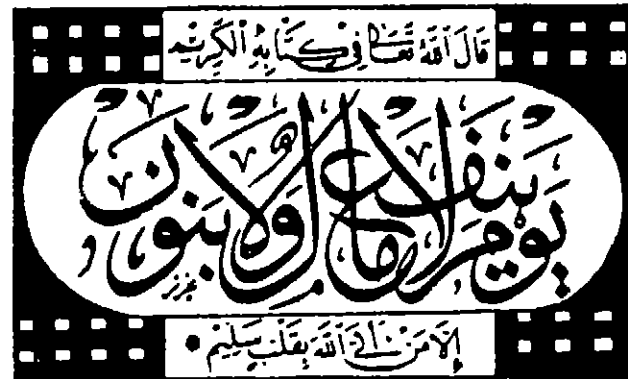 قَالَ ٱللَّهُ تَعَالَىٰ فِي كِتَابِهِ ٱلْكَرِيمِ
يَوْمَ لَا يَنفَعُ مَالٌ وَلَا بَنُونَ
إِلَّا مَنْ أَتَى ٱللَّهَ بِقَلْبٍ سَلِيمٍ